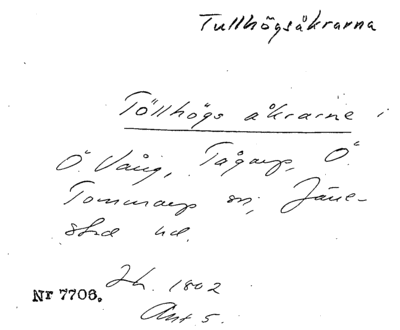 Tullhögsåkrarna
Töllhögs åkrarne i
Ö. Vång, Tågarp, Ö.
Tommarps sn, Järre-
stad hd.
Jh. 1802
Nr 7706.
Akt 5.